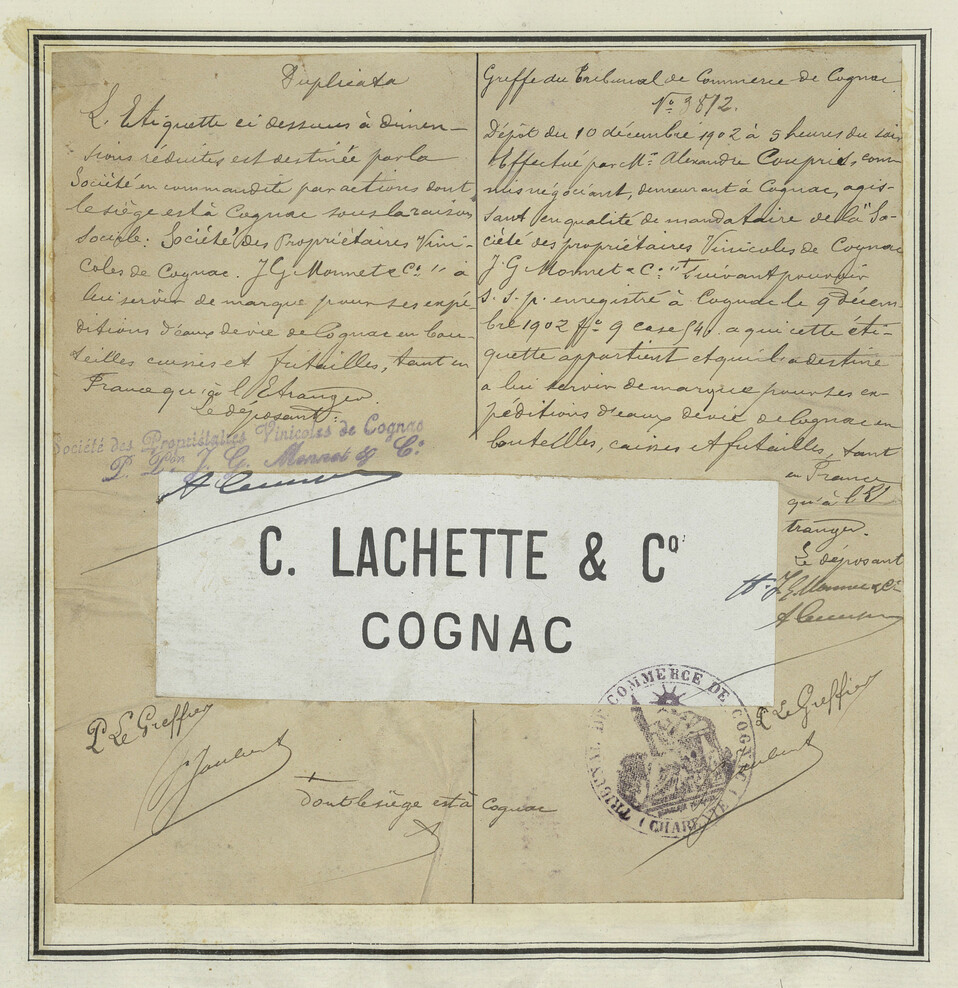 Duplicata
L'Etiquette ci dessous à dimen-
sions réduites est destinée par la
Société en commandite par actions dont
le siège est à Cognac sous la raison
sociale: Société des Propriétaires Vini-
coles de Cognac. J. G. Monnet & Co " à
lui servir de marque pour ses expé-
ditions d'eaux de vie de Cognac en bou-
teilles caisses et futailles, tant en
France qu'à l'Etranger.
Le déposant.
Société des Propriétaires Vinicoles de Cognac
P. Pon J. G. Monnet & Co
Greffe du Tribunal de Commerce de Cognac
No 9812.
Dépôt du 10 décembre 1902 à 5 heures du soir
Effectué par Mr Alexandre Couprie, com-
mis négociant, demeurant à Cognac, agis-
sant en qualité de mandataire de la "So-
ciété des propriétaires Vinicoles de Cognac
J. G. Monnet & Co " + suivant pouvoir
s. s. p. enregistré à Cognac le 9 décem-
bre 1902 fo 9 case 540. a qui cette éti-
quette appartient et qui l'a destiné
a lui servir de marque pour ses ex-
péditions d'eaux de vie de Cognac en
bouteilles, caisses et futailles, tant
en France
qu'à l'E
tranger.
Le déposant
J. G. Monnet & Co
C. LACHETTE & Co.
COGNAC
P. Le Greffier
Joubert
P. Le Greffier
Joubert
+ dont le siège est à Cognac
TRIBUNAL DE COMMERCE DE COGNAC
(CHARENTE)